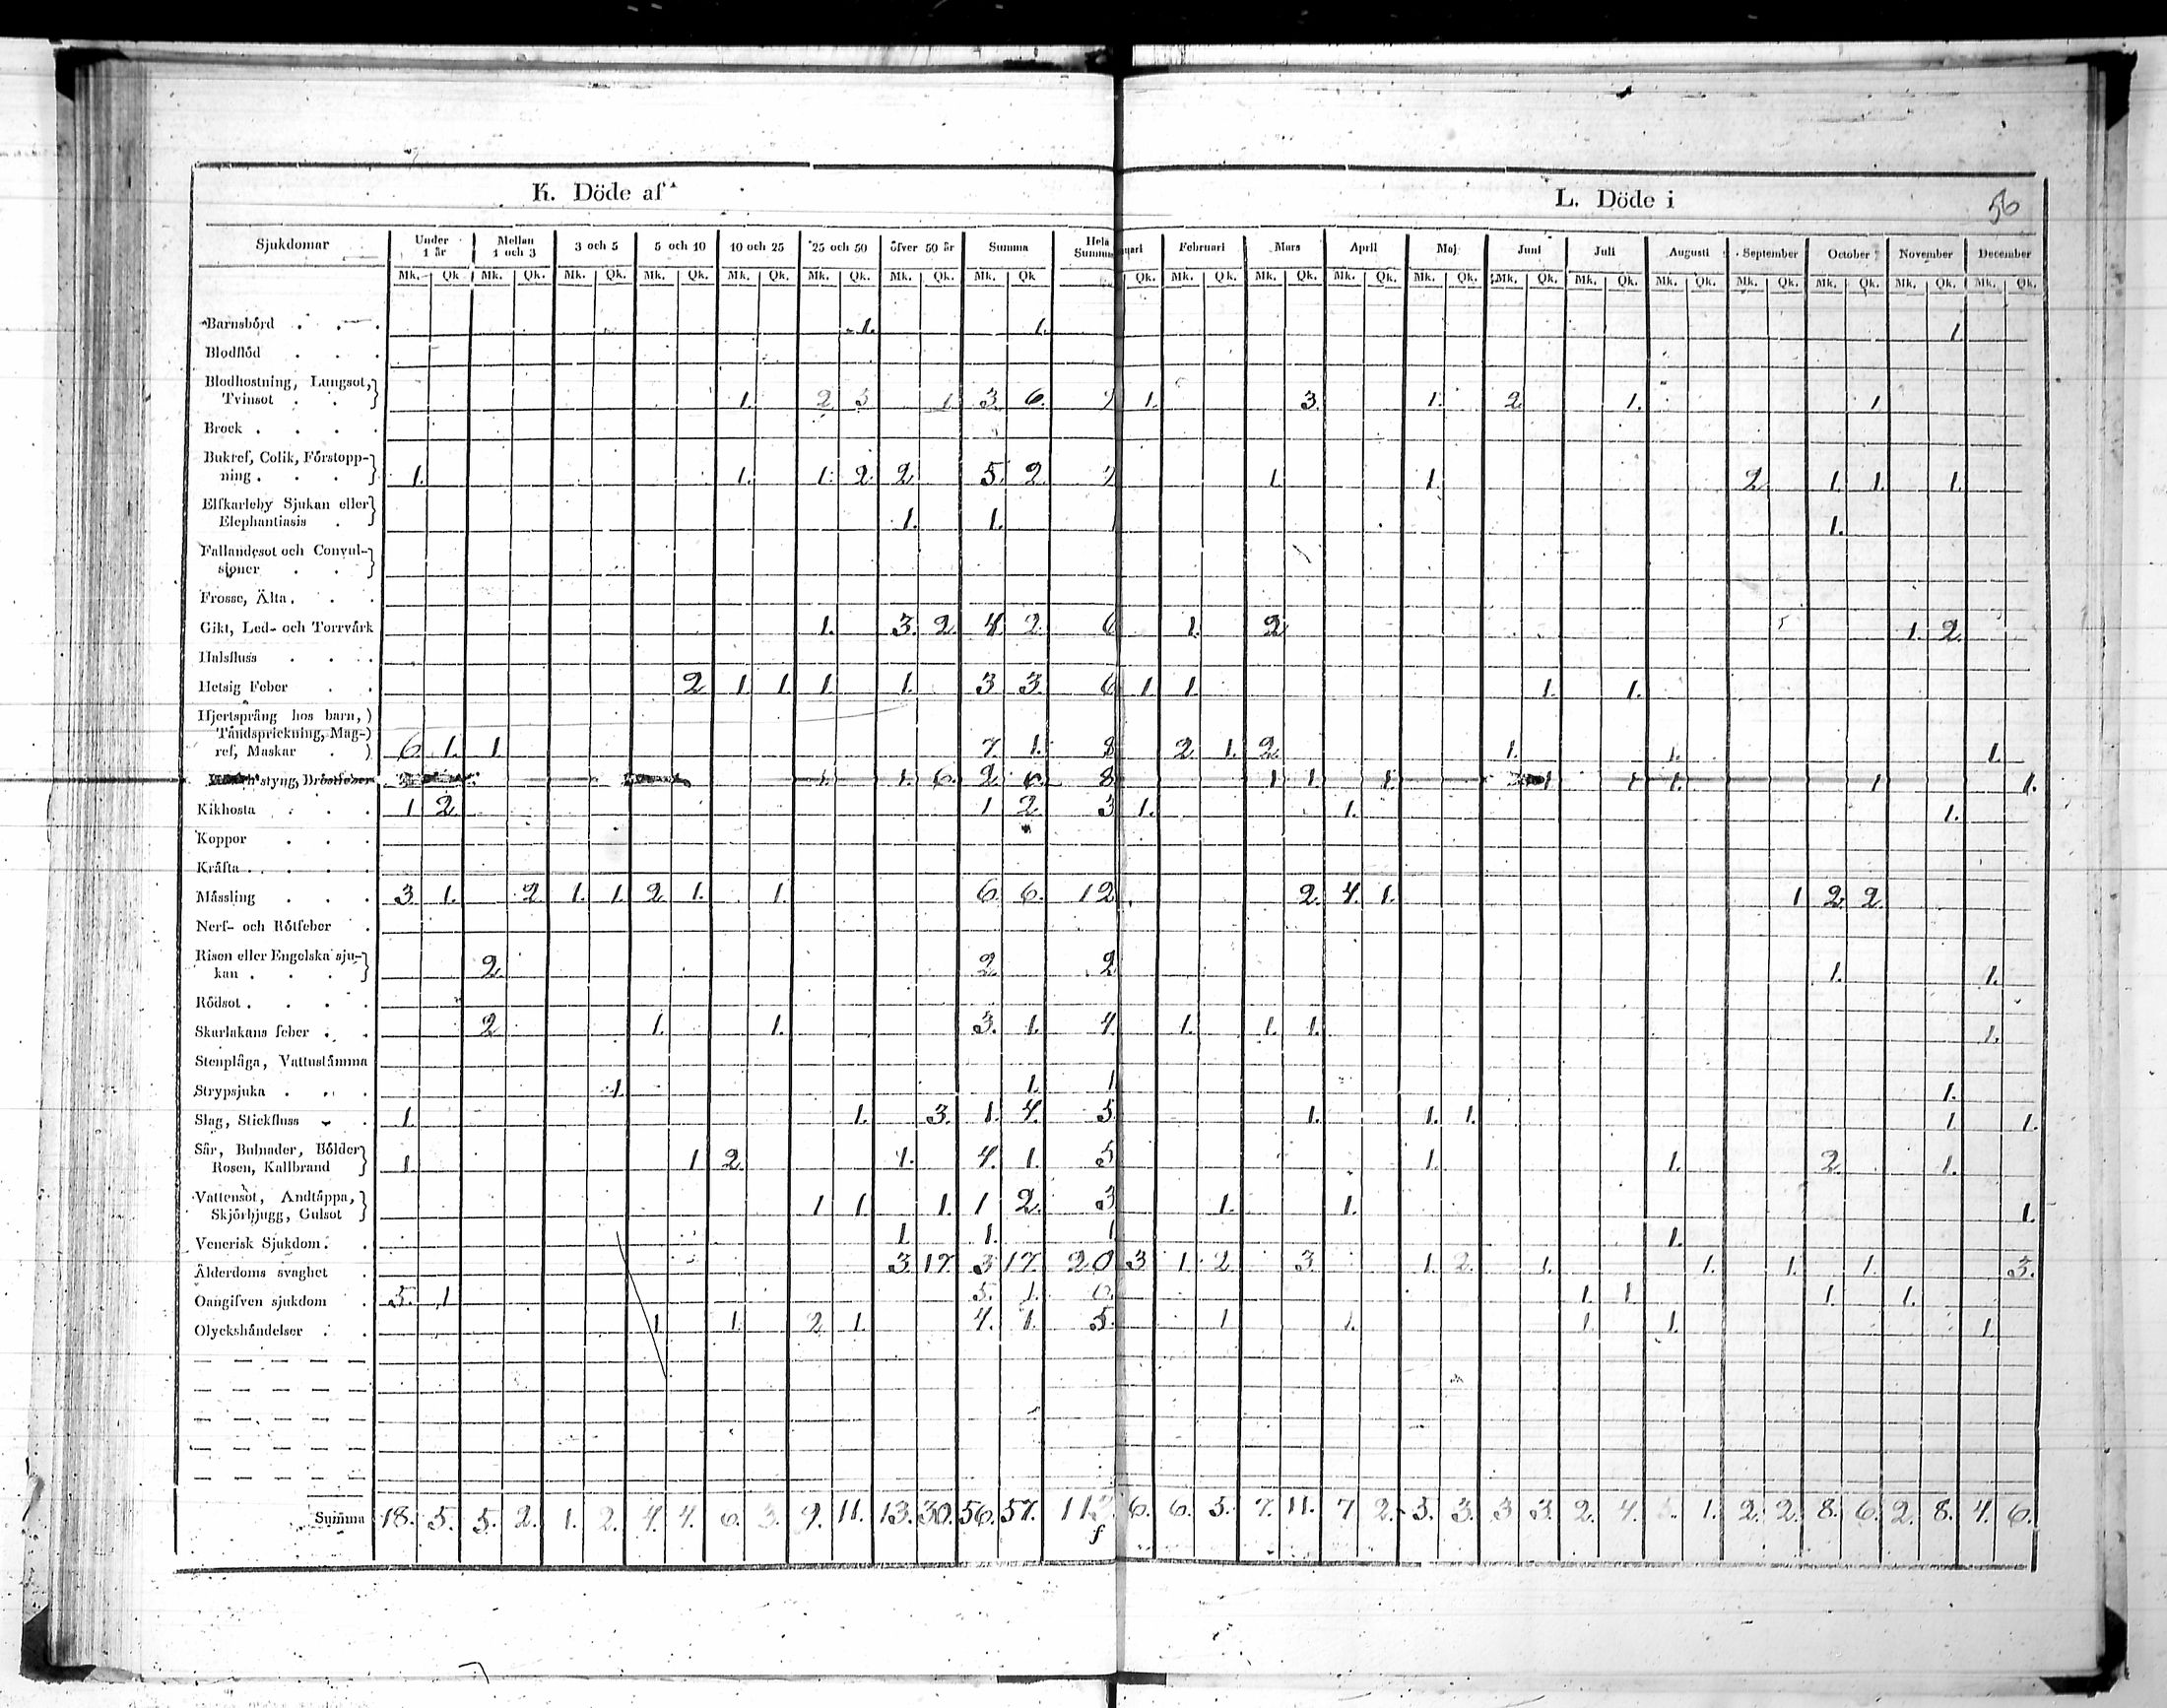 K. Döde af
L. Döde i
56
Sjukdomar | Under 1 år | Mellan 1 och 3 | 3 och 5 | 5 och 10 | 10 och 25 | 25 och 50 | öfver 50 år | Summa | Hela Summa | uari | Februari | Mars | April | Maj | Juni | Juli | Augusti | September | October | November | December
Mk. Qk. Mk. Qk. Mk. Qk. Mk. Qk. Mk. Qk. Mk. Qk. Mk. Qk. Mk. Qk | Qk. Mk. Qk. Mk. Qk. Mk. Qk. Mk. Qk. Mk. Qk. Mk. Qk. Mk. Qk. Mk. Qk. Mk. Qk. Mk. Qk. Mk. Qk.
Barnsbörd . . . 1. 1. 1.
Blodflöd . . .
Blodhostning, Lungsot,
Tvinsot . . 1. 2 3 1 3 6. 1. 3. 1. 2 1. 1
Brock . . . .
Bukref, Colik, Förstopp-
ning . . . 1. 1. 1. 2. 2 5. 2. 1. 1. 2 1. 1. 1.
Elfkarleby Sjukan eller
Elephantiasis . 1. 1. 1.
Fallandesot och Convul-
sioner . .
Frosse, Älta . . .
Gikt, Led- och Torrvärk 1. 3. 2. 4 2. 6 1. 2 1. 2
Halsfluss . . . .
Hetsig Feber . . 2 1. 1. 1. 1. 3 3. 6 1. 1. 1. 1.
Hjertsprång hos barn,
Tandsprickning, Mag-
ref, Maskar . 6 1. 1 7 1. 8 2 1. 2 1. 1. 1.
styng, Bröstfeber 1. 1. 6. 2 6. 8 1 1. 1. 1 1 1. 1 1.
Kikhosta . . . 1 2 1 2. 3 1. 1. 1.
Koppor . . .
Kräfta . . . .
Mässling . . . 3 1. 2 1. 1. 2 1. 1. 6. 6. 12 2. 4 1. 1 2 2
Nerf- och Rötfeber .
Risen eller Engelska sju-
kan . . . . 2 2 2 1. 1.
Rödsot . . . .
Skarlakans feber . . 2 1. 1. 3. 1. 4. 1. 1. 1. 1.
Stenplåga, Vattustämma
Strypsjuka . . . 1. 1. 1 1.
Slag, Stickfluss . 1. 1. 3. 1. 4. 5. 1. 1. 1. 1 1.
Sår, Bulnader, Bölder
Rosen, Kallbrand 1. 1 2 1. 4. 1. 5 1. 1. 2 1.
Vattensot, Andtäppa,
Skjörbjugg, Gulsot 1 1. 1. 1 2. 3 1. 1. 1.
Venerisk Sjukdom . . 1 1. 1 1.
Ålderdoms svaghet . 3 17. 3 17. 20 3 1. 2 3. 1 2 1. 1. 1. 1. 3.
Oangifven sjukdom . 5. 1 5. 1. 1. 1 1. 1.
Olyckshändelser . . 1 1. 2 1. 4. 1. 5. 1 1. 1. 1. 1.
Summa 18. 5. 5. 2. 1. 2. 4. 4. 6. 3. 9. 11. 13. 30. 56. 57. 6. 6. 5. 7. 11. 7 2. 3. 3. 3 3. 2. 4. 1. 2. 2. 8. 6. 2. 8. 4. 6.